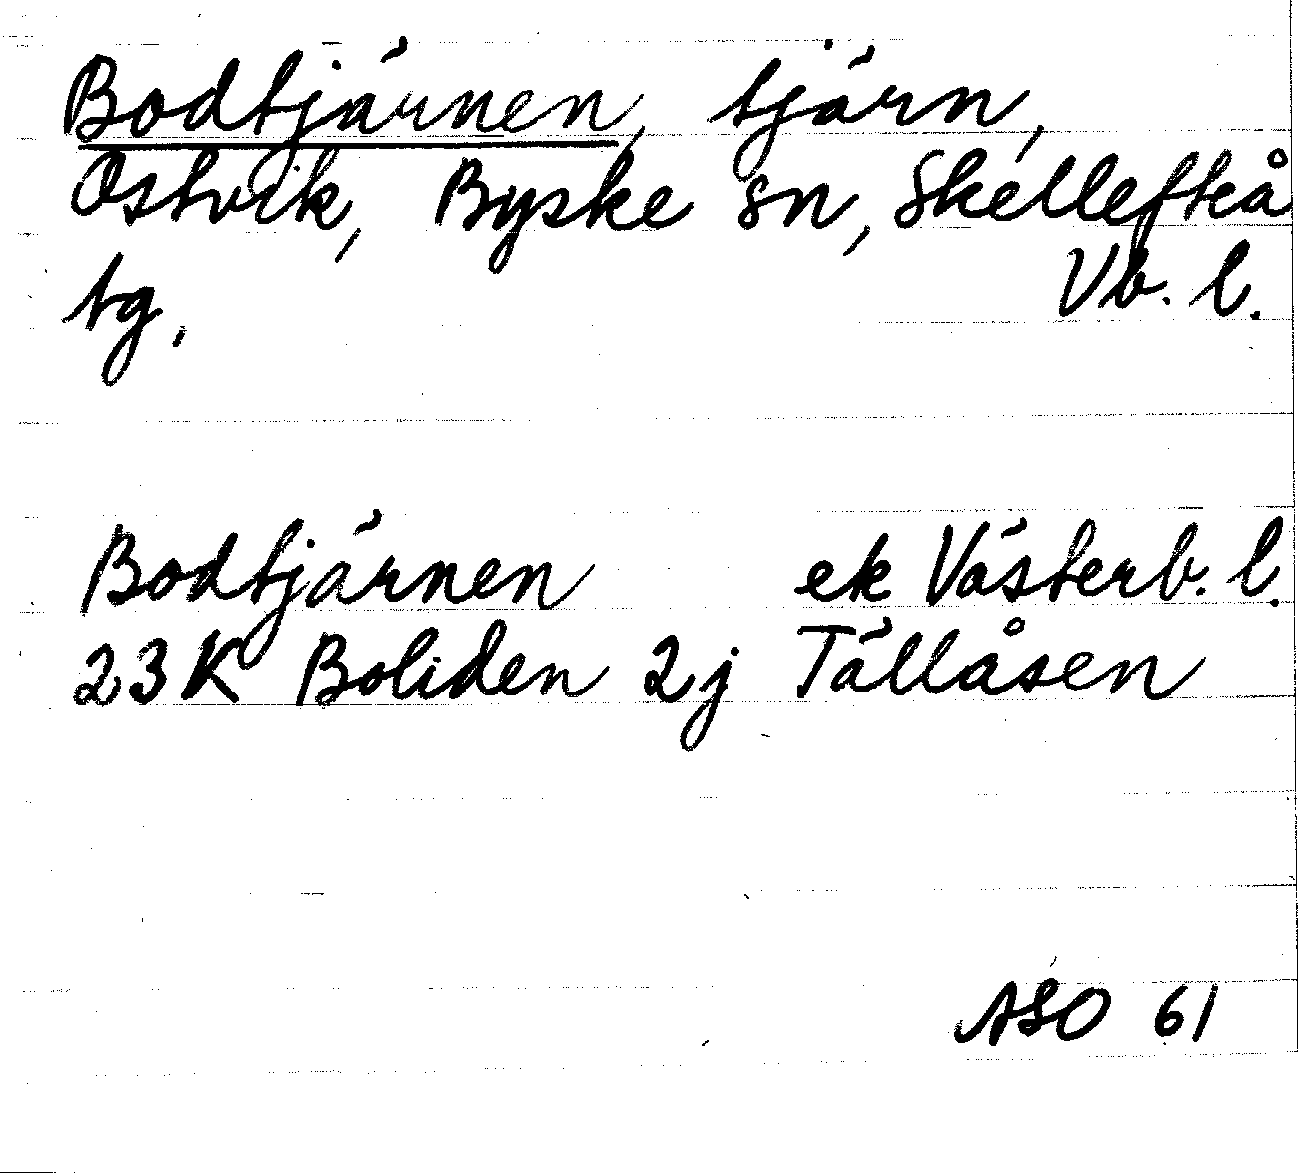 Bodtjärnen, tjärn,
Ostvik, Byske sn, Skellefteå
tg, Vb. l.
Bodtjärnen ek Västerb. l.
23K Boliden 2j Tällåsen
ASO 61